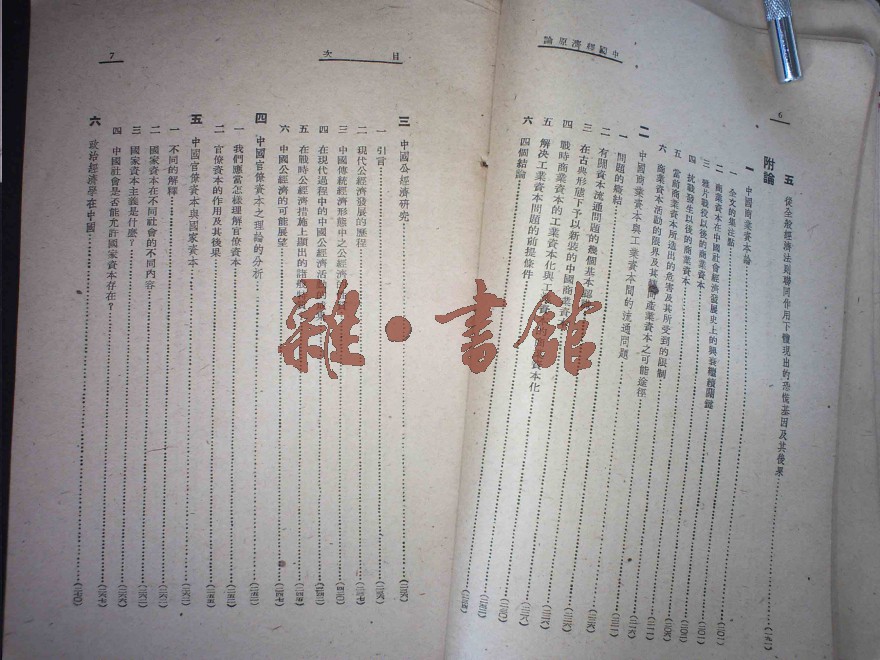 中國經濟原論
6
五 從全般經濟法則聯同作用下體現出的恐慌基因及其後果
附論
一 中國商業資本論
一 全文的集注點
二 商業資本在中國社會經濟發展史上的興衰
三 鴉片戰役以後的商業資本
四 抗戰發生以後的商業資本
五 當前商業資本所造出的危害及其所受到的限制
六 商業資本活動的限界及其 產業資本之可能途徑
二 中國商業資本與工業資本間的流通問題
一 問題的癥結
二 有關資本流通問題的幾個基本
三 在古典形態下予以新裝的中國商業資
四 戰時商業資本的工業資本化與工 資本化
五 解決工業資本問題的前提條件
六 四個結論
目次
7
三 中國公經濟研究
一 引言
二 現代公經濟發展的歷程
三 中國傳統經濟形態中之公經濟
四 在現代過程中的中國公經濟活動
五 在戰時公經濟措施上顯出的諸
六 中國公經濟的可能展望
四 中國官僚資本之理論的分析
一 我們應當怎樣理解官僚資本
二 官僚資本的作用及其後果
五 中國官僚資本與國家資本
一 不同的解釋
二 國家資本在不同社會的不同內容
三 國家資本主義是什麼?
四 中國社會是否能允許國家資本存在?
六 政治經濟學在中國
雜·書館